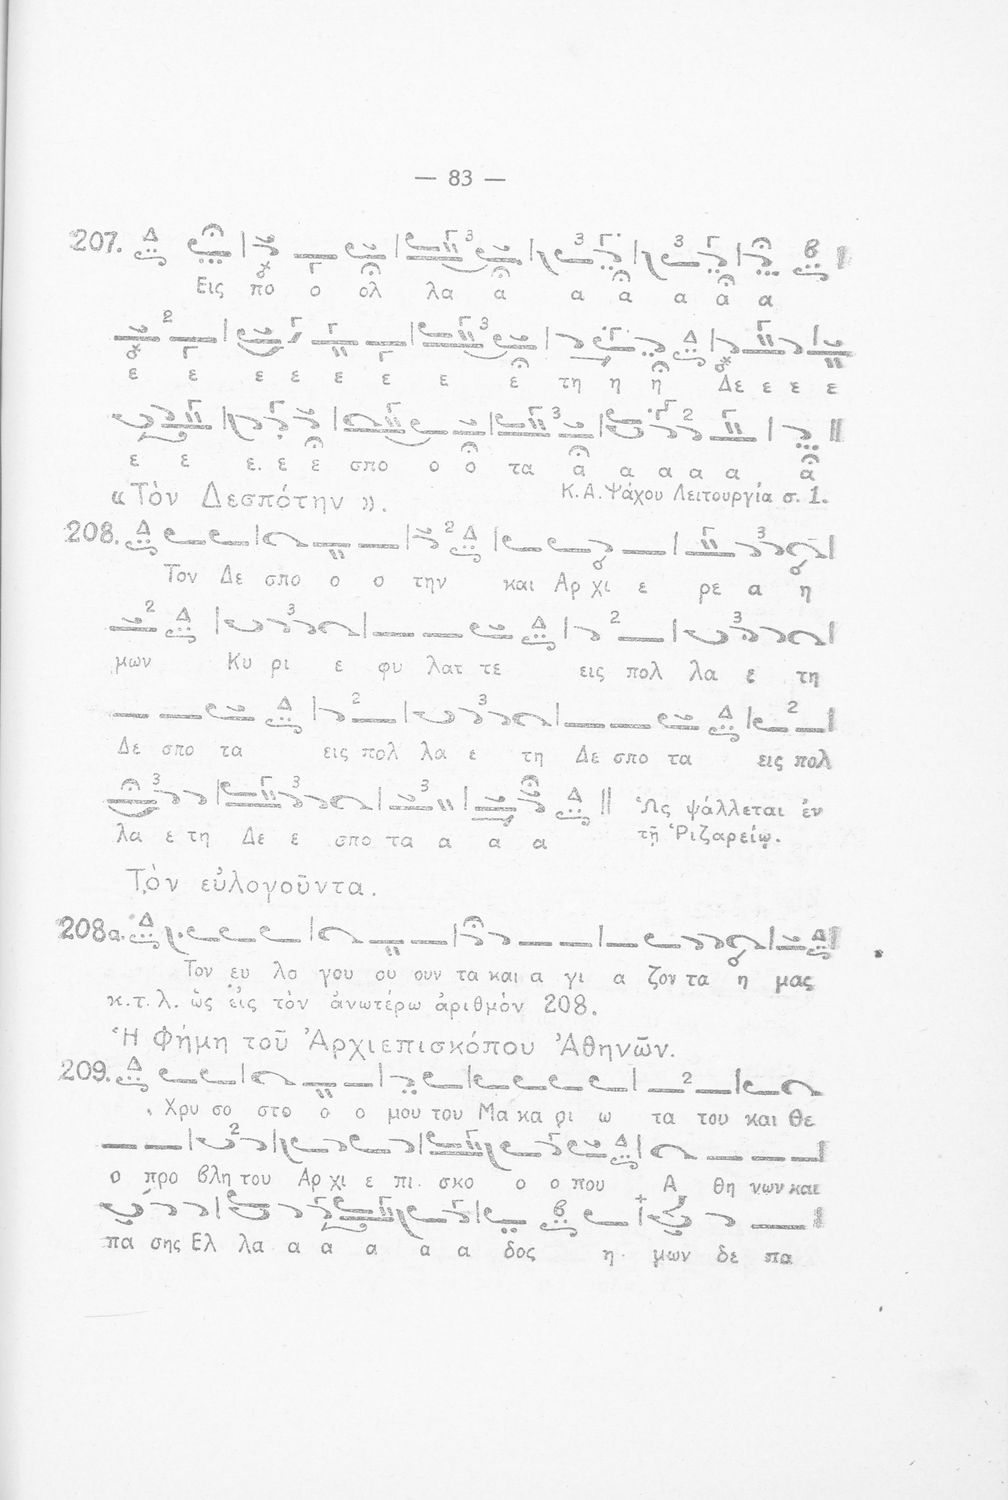 — 83 —
207.
Εις πο ο ολ λα α α α α α α
ε ε ε ε ε ε ε ε τη η η Δε ε ε ε
ε ε ε. ε ε σπο ο ο τα α α α α α α
«Τὸν Δεσπότην». Κ. Α. Ψάχου Λειτουργία σ. 1.
208.
Τον Δε σπο ο ο την και Αρ χι ε ρε α η
μων Κυ ρι ε φυ λατ τε εις πολ λα ε τη
Δε σπο τα εις πολ λα ε τη Δε σπο τα εις πολ
λα ε τη Δε ε σπο τα α α α
Ὡς ψάλλεται ἐν
τῇ Ῥιζαρείῳ.
Τὸν εὐλογοῦντα.
208α.
Τον ευ λο γου ου ουν τα και α γι α ζον τα η μας
κ.τ.λ. ὡς εἰς τὸν ἀνωτέρω ἀριθμὸν 208.
Ἡ Φήμη τοῦ Ἀρχιεπισκόπου Ἀθηνῶν.
209.
Χρυ σο στο ο ο μου του Μα κα ρι ω τα του και Θε
ο προ βλη του Αρ χι ε πι σκο ο ο που Α θη νων και
πα σης Ελ λα α α α α α δος η μων δε πα